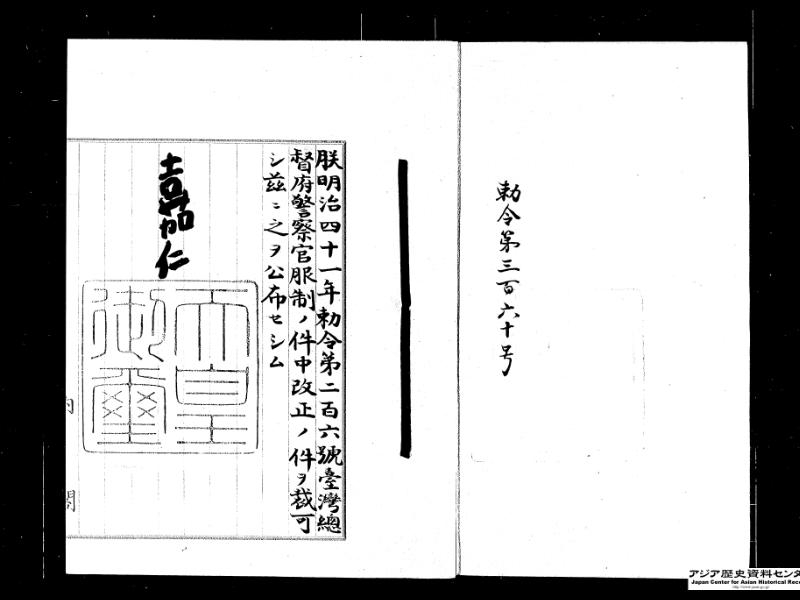 勅令第三百六十号
朕明治四十一年勅令第二百六號臺灣總
督府警察官服制ノ件中改正ノ件ヲ裁可
シ茲ニ之ヲ公布セシム
嘉仁
天皇
御璽
内
閣
アジア歴史資料センタ
Japan Center for Asian Historical Reco